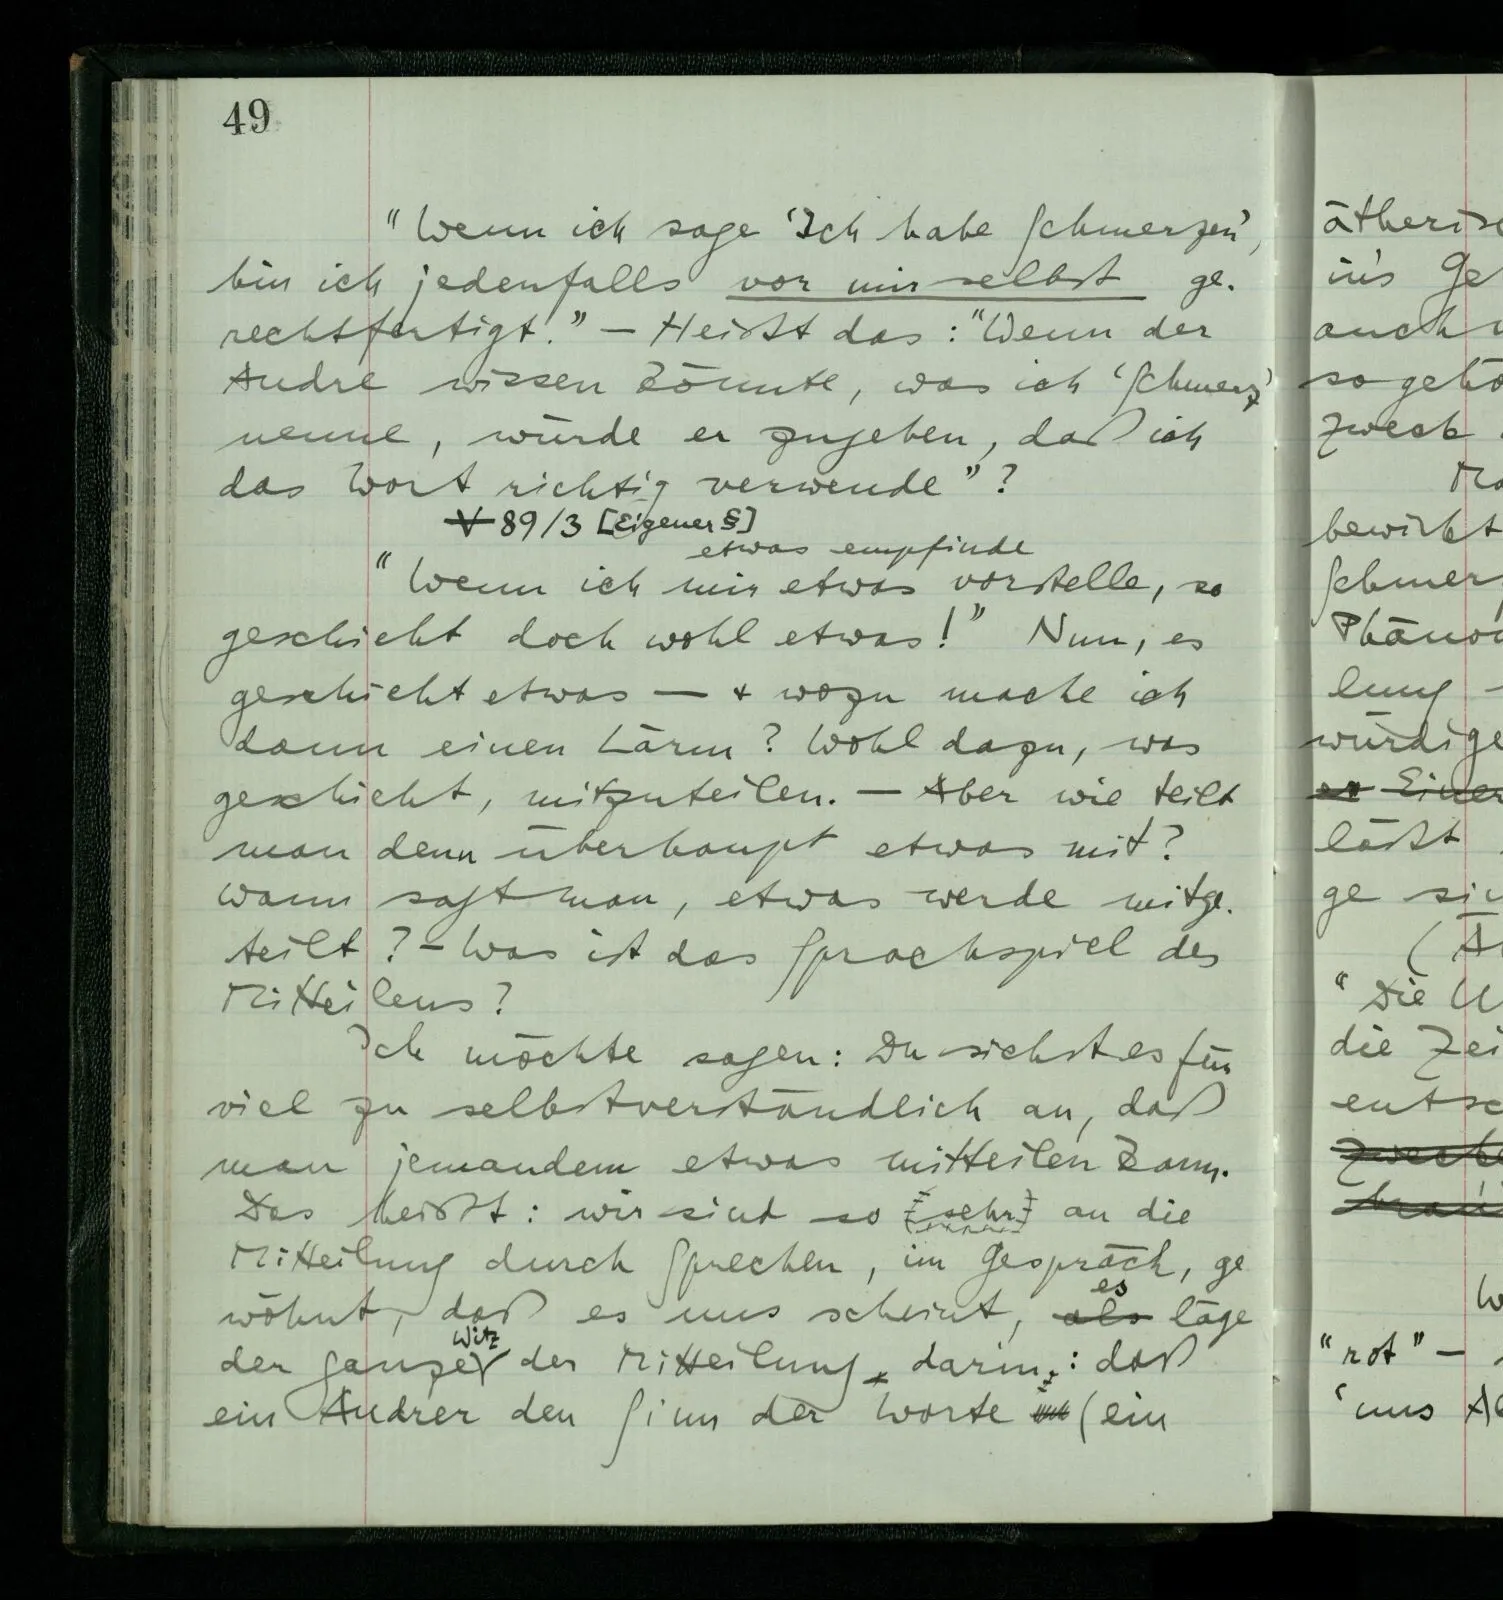 49
"Wenn ich sage 'Ich habe Schmerzen',
bin ich jedenfalls vor mir selbst ge-
rechtfertigt." – Heißt das: "Wenn der
Andre wissen könnte, was ich 'Schmerz'
nenne, würde er zugeben, daß ich
das Wort richtig verwende"?
V 89/3 [Eigener §]
etwas empfinde
"Wenn ich mir etwas vorstelle, so
geschieht doch wohl etwas!" Nun, es
geschieht etwas – + wozu mache ich
dann einen Lärm? Wohl dazu, was
geschieht, mitzuteilen. – Aber wie teilt
man denn überhaupt etwas mit?
Wann sagt man, etwas werde mitge-
teilt? – Was ist das Sprachspiel des
Mitteilens?
Ich möchte sagen: Du siehst es für
viel zu selbstverständlich an, daß
man jemandem etwas mitteilen kann.
Das heißt: wir sind so sehr an die
Mitteilung durch Sprechen, im Gespräch, ge
wöhnt, daß es uns scheint, als es läge
der ganze Witz der Mitteilung darin: daß
ein Andrer den Sinn der Worte (ein
ätheris
in's Ge
auch
so gehö
Zweck
bewirkt
Schmerz
Phäno
lung –
würdige
Einer
läßt
ge
"Die
die Zei
entsc
Zwecke
"rot" –
'uns